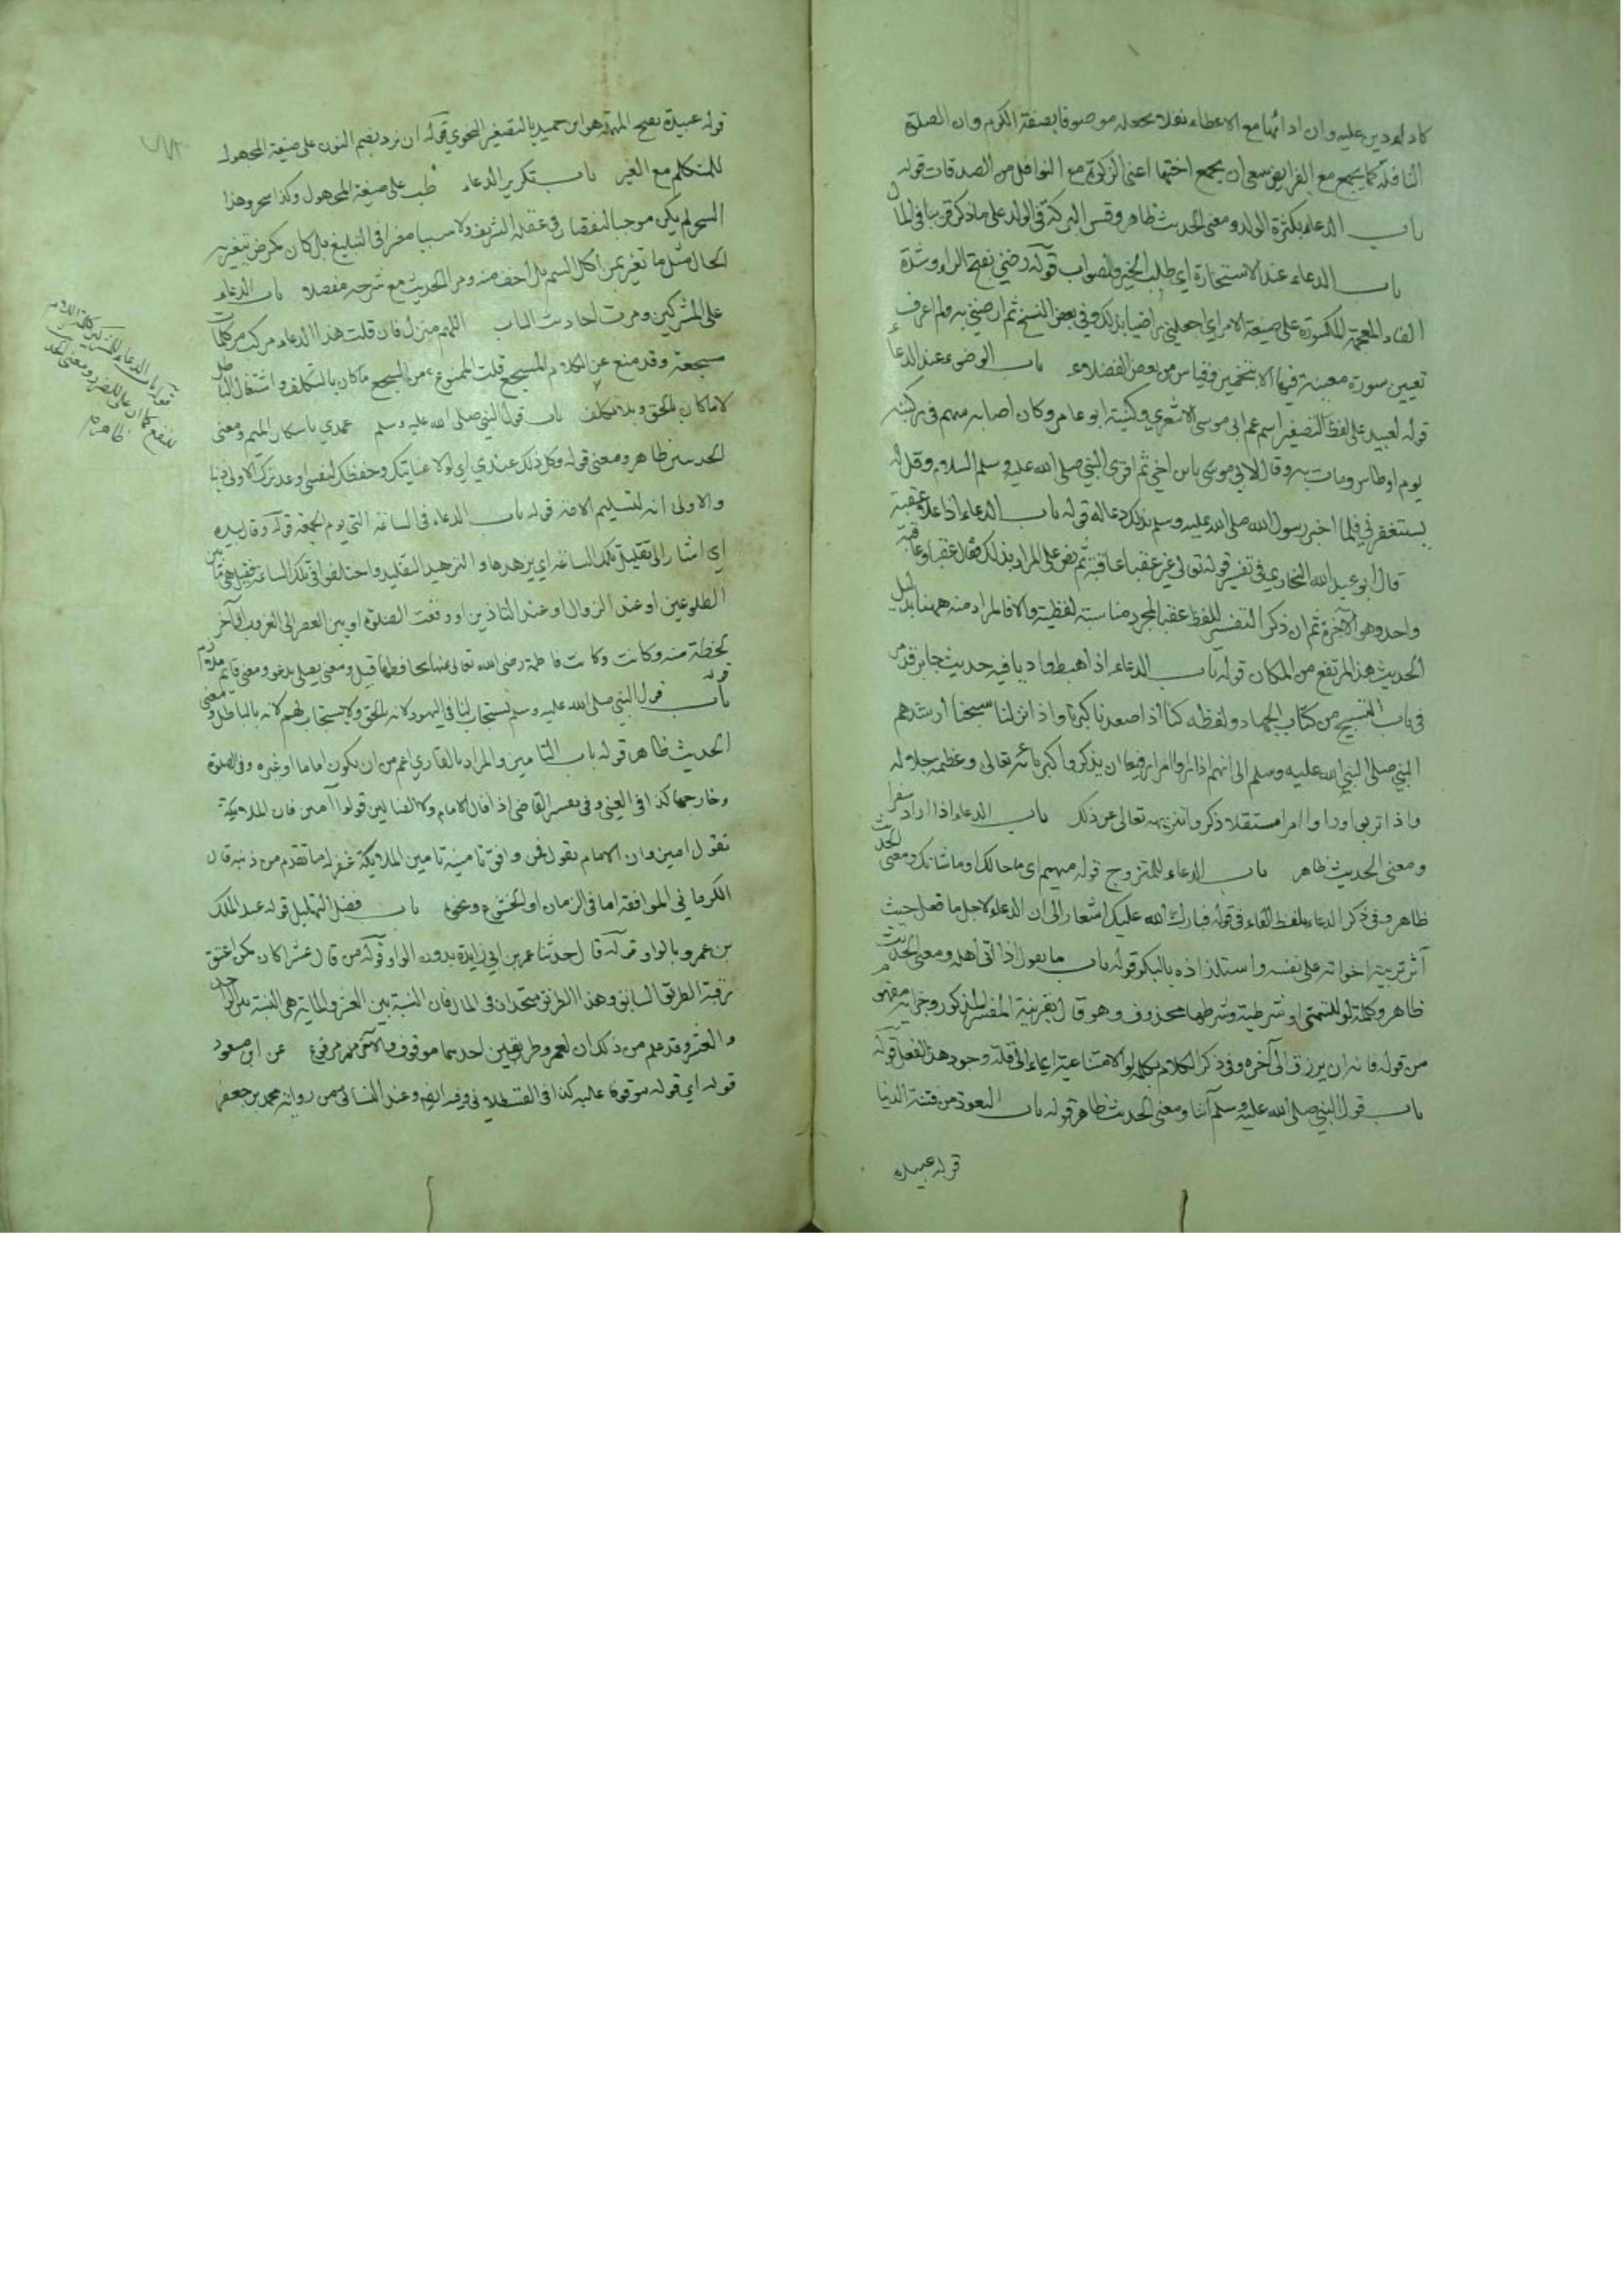 كاداء دين عليه وان اداءها مع الاعطاء نفلا تجعله موصوفا بصفة الكرم وان الصلوة
النافلة كما يجمع مع الفرايض ينبغي ان يجمع اختها اعنى الزكوة مع النوافل من الصدقات قوله
باب الدعاء بكثرة الولد ومعنى الحديث ظاهر وقس البركة في الولد على ما ذكر قريبا في المال
باب الدعاء عند الاستخارة اي طلب الخير والصواب قوله رضني بفتح الراء وشدة
الضاد المعجمة المكسورة على صيغة الامر اي اجعلني راضيا بذلك وفي بعض النسخ ثم ارضني به ولم اعرف
تعيين سورة معينة فيها الا بتخمين وقياس من بعض الفضلاء باب الوضوء عند الدعاء
قوله لعبيد على لفظ التصغير اسم عم ابى موسى الاشعري وكنيته ابو عامر وكان اصابه سهم في ركبته
يوم اوطاس ومات به وقال لابي موسى يا ابن اخي ثم اقرئ النبي صلى الله عليه وسلم السلام وقل له
يستغفر لي فلما اخبر رسول الله صلى الله عليه وسلم بذلك دعا له قوله باب الدعاء اذا علا عقبة
قال ابو عبد الله البخاري في تفسير قوله تعالى خير عقبا عاقبة ثم نص على المراد بذلك فقال عقبا وعاقبة
واحد وهو الآخرة ثم ان ذكر التفسير للفظ عقبا لمجرد مناسبة لفظية والا فالمراد منه ههنا بدليل
الحديث هذا المرتفع من المكان قوله باب الدعاء اذا هبط واديا فيه حديث جابر قد مر
في باب التسبيح من كتاب الجهاد ولفظه كنا اذا صعدنا كبرنا واذا نزلنا سبحنا ارشدهم
النبي صلى الله عليه وسلم الى انهم اذا راوا امرا رفيعا ان يذكروا كبرياءه تعالى وعظمة جلاله
واذا تربوا وراوا امرا مستقلا ذكروا تنزيهه تعالى عن ذلك باب الدعاء اذا اراد سفرا
ومعنى الحديث ظاهر باب الدعاء للمتزوج قوله مهيم اي ما حالك او ما شانك ومعنى الحديث
ظاهر وفي ذكر الدعاء بلفظ الفاء في قوله فبارك الله عليك اشعار الى ان الدعاء لاجل ما فعل حيث
آثر تربية اخواته على نفسه واستلذاذه بالبكر قوله باب ما يقول اذا اتى اهله ومعنى الحديث
ظاهر وكلمة لو للتمني او شرطية وشرطها محذوف وهو قال بقرينة المفسر المذكور وجزاؤه مفهوم
من قوله فانه ان يرزق الى آخره وفي ذكر الكلام بكلمة لو الامتناعية ايماء الى قلة وجود هذا الفعل قوله
باب قول النبي صلى الله عليه وسلم آتنا ومعنى الحديث ظاهر قوله باب التعوذ من فتنة الدنيا
قوله عبيدة
قوله عبيدة بفتح المهملة هو ابن حميد بالتصغير النحوي قوله ان نرد بضم النون على صيغة المجهول
للمتكلم مع الغير باب تكرير الدعاء طب على صيغة المجهول وكذا سحر وهذا
السحر لم يكن موجبا لنقصان في عقله الشريف ولا سببا مضرا في التبليغ بل كان كمرض بتغير به
الحال مثل ما تغير بمن اكل السم بل اخف منه ومر الحديث مع شرحه مفصلا باب الدعاء
على المشركين ومرت احاديث الباب اللهم منزل فان قلت هذا الدعاء مركب من كلمات
مسجعة وقد منع عن الكلام المسجع قلت الممنوع من السجع ما كان بالتكلف واشتغال الباطل
لا ما كان بالحق وبلا تكلف باب قول النبي صلى الله عليه وسلم عمدي باسكان الميم ومعنى
الحديثين ظاهر ومعنى قوله وكل ذلك عندي اي لولا عنايتك وحفظك لنفسي وعد ترك الاولى ذنبا
والاولى انه لتسليم الامة قوله باب الدعاء في الساعة التي يوم الجمعة قوله وقال بيده
اي اشار الى تقليل تلك الساعة اي يزهدها والتزهيد التقليل واختلفوا في تلك الساعة فقيل هي ما بين
الطلوعين او عند الزوال او عند التاذين او وقت الصلوة او بين العصر الى الغروب او آخر
لحظة منه وكانت فاطمة رضي الله تعالى عنها تحافظها قيل ومعنى يصلي يدعو ومعنى قائم ملازم
قوله باب قول النبي صلى الله عليه وسلم يستجاب لنا في اليهود لانه بالحق ولا يستجاب لهم لانه بالباطل ومعنى
الحديث ظاهر قوله باب التامين والمراد بالقاري اعم من ان يكون اماما او غيره وفي الصلوة
وخارجها كذا في العيني وفي تفسير القاضي اذا قال الامام ولا الضالين قولوا آمين فان الملائكة
تقول امين وان الامام يقول فمن وافق تامينه تامين الملايكة غفر له ما تقدم من ذنبه قال
الكرماني الموافقة اما في الزمان او الخشوع ونحوه باب فضل التهليل قوله عبد الملك
بن عمرو بالواو قوله قال حدثنا عمر بن ابي زايدة بدون الواو قوله من قال عشرا كان كمن اعتق
رقبة الطريق السابق وهذا الطريق متحدان في المال فان النسبة بين العشر والماية هي النسبة بين الواحد
والعشر وقد علم من ذلك ان لعمر وطريقين احدهما موقوف والآخر مرفوع عن ابن مسعود
قوله اي قوله موقوفا عليه كذا في القسطلاني وفيه ايضا وعند النسائي من رواية محمد بن جعفر
قوله باب الدعاء للمشركين كلمة اللام
للنفع كما ان على للضرر ومعنى الحديث
ظاهر